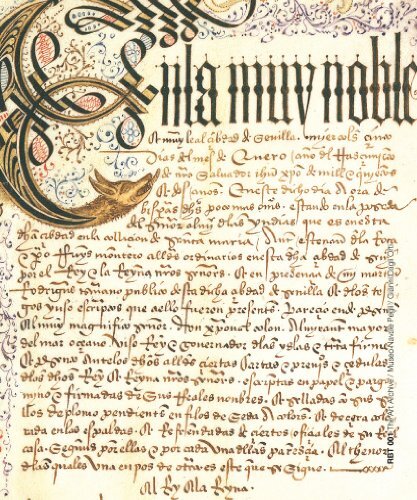 En la muy noble
E muy leal çibdad de Sevilla miercoles çinco
dias del mes de Enero año del nasçimiento
de nro Salvador ihu xpo de mill e quinientos
E dos años. En este dicho dia a ora de
bisperas poco mas o menos estando en la posada
del señor almirante de las yndias que es en esta
dicha çibdad en la collaçion de Santa maria Ante estevan de la Roca
e pero Ruys montero alldes ordinarios en esta dicha çibdad de Sevilla
por el Rey e la Reyna nros señores. E en presençia de mi martin
Rodrigues escrivano publico de esta dicha çibdad de Sevilla E de los tes
tigos yuso escriptos que a ello fueron presentes. Paresçio ende presente
el muy magnifico señor don xpoval colon. Almirante mayor
del mar oçeano viso Rey e governador de las yslas e tierra firme
E presento Antelos dichos alldes çiertas Cartas e previlejos e çedulas
de los dichos Rey e Reyna nros señores. escriptas en papel e parga
mino e firmadas de sus Reales nonbres. E selladas con sus se
llos de plomo pendientes en filos de seda A colores. E de çera colo
rada en las espaldas. E Refrendadas de çiertos ofiçiales de su Real
casa. Segun por ellas e por cada una dellas paresçia. El thenor
de las quales una en pos de otra es este que se sigue.
El Rey e la Reyna